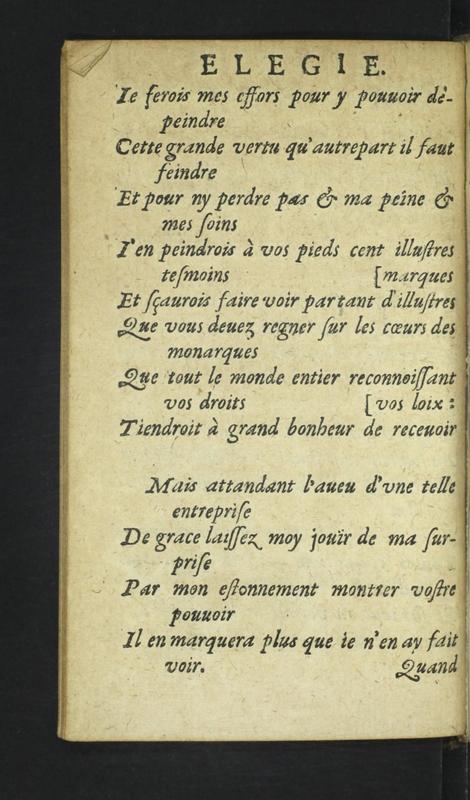 ELEGIE.
Ie ferois mes effors pour y pouuoir dé-
peindre
Cette grande vertu qu'autrepart il faut
feindre
Et pour ny perdre pas & ma peine &
mes ſoins
I'en peindrois à vos pieds cent illuſtres
teſmoins [marques
Et ſçaurois faire voir par tant d'illuſtres
Que vous deuez regner ſur les cœurs des
monarques
Que tout le monde entier reconnoiſſant
vos droits [vos loix :
Tiendroit à grand bonheur de receuoir
Mais attandant l'aueu d'vne telle
entrepriſe
De grace laiſſez moy jouïr de ma ſur-
priſe
Par mon eſtonnement montrer voſtre
pouuoir
Il en marquera plus que ie n'en ay fait
voir. Quand